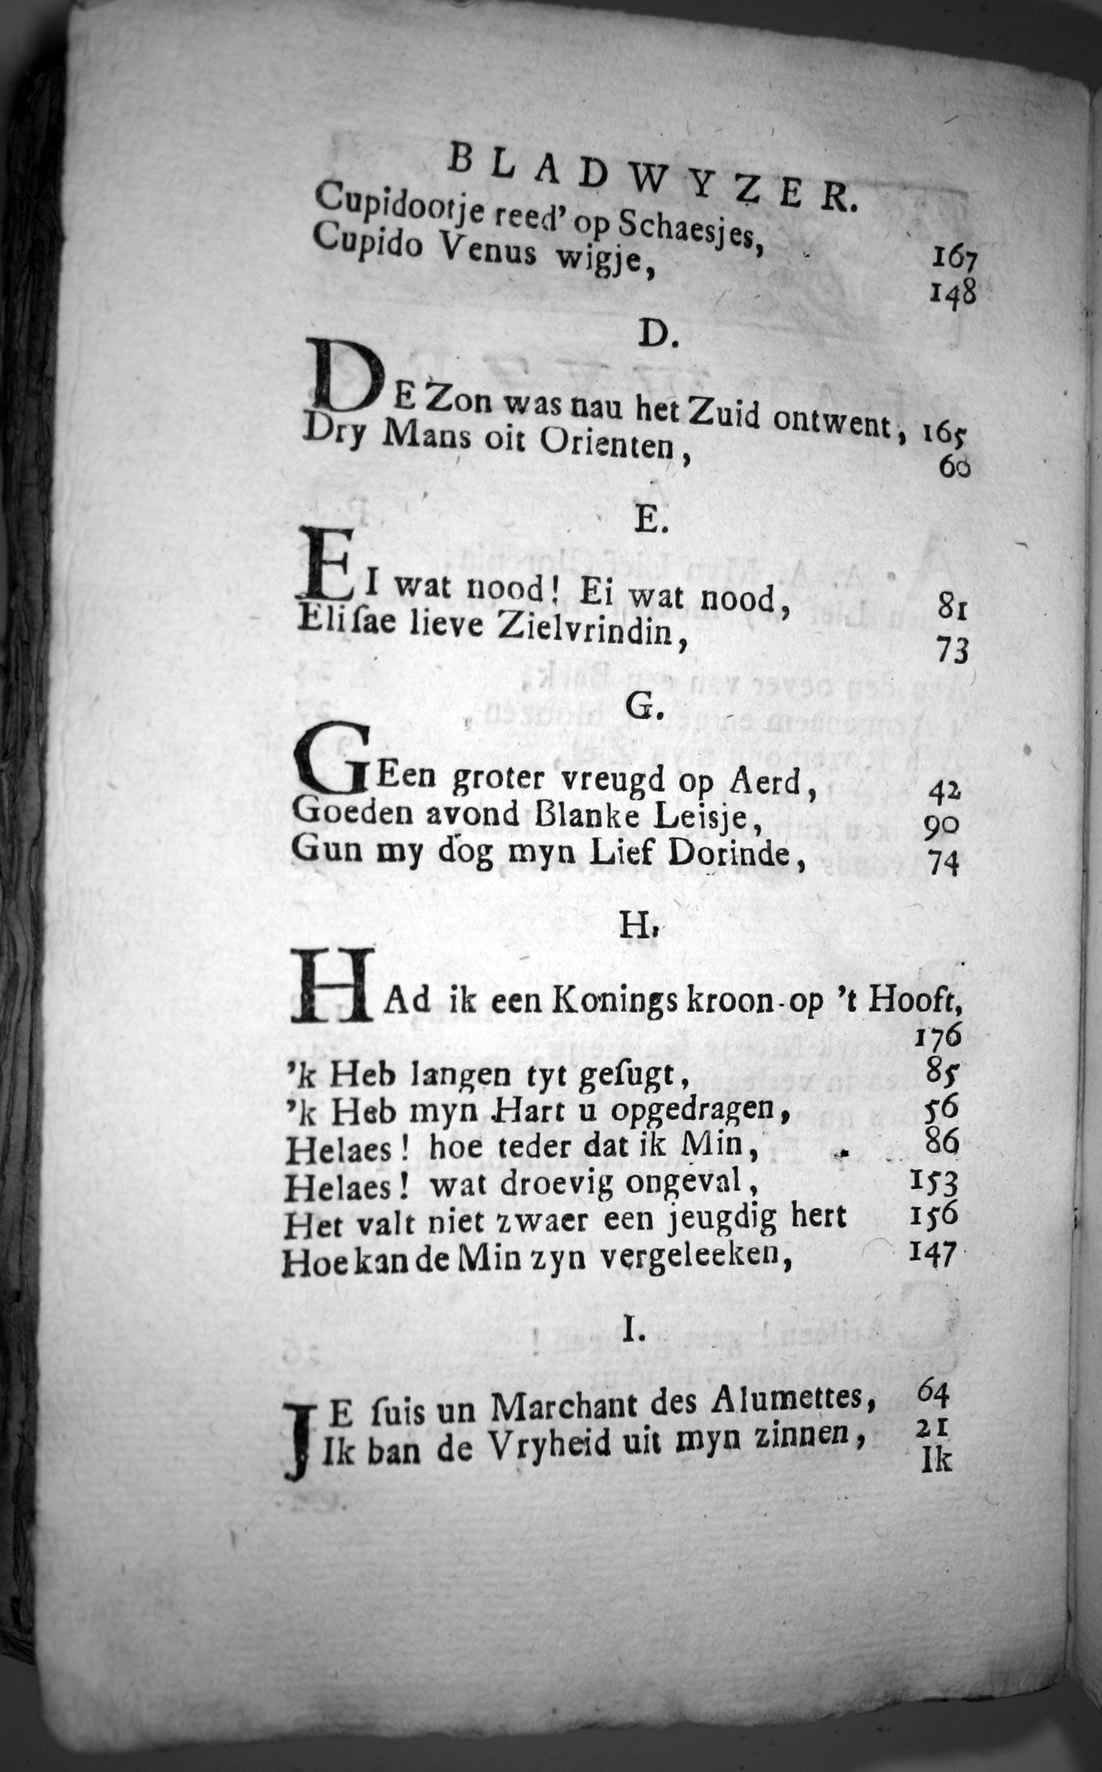 BLADWYZER.
Cupidootje reed' op Schaesjes, 167
Cupido Venus wigje, 148
D.
DE Zon was nau het Zuid ontwent, 165
Dry Mans oit Orienten, 60
E.
EI wat nood! Ei wat nood, 81
Eliſae lieve Zielvrindin, 73
G.
GEen groter vreugd op Aerd, 42
Goeden avond Blanke Leisje, 90
Gun my dog myn Lief Dorinde, 74
H.
HAd ik een Konings kroon op 't Hooft,
176
'k Heb langen tyt geſugt, 85
'k Heb myn Hart u opgedragen, 56
Helaes! hoe teder dat ik Min, 86
Helaes! wat droevig ongeval, 153
Het valt niet zwaer een jeugdig hert 156
Hoe kan de Min zyn vergeleeken, 147
I.
JE ſuis un Marchant des Alumettes, 64
Ik ban de Vryheid uit myn zinnen, 21
Ik